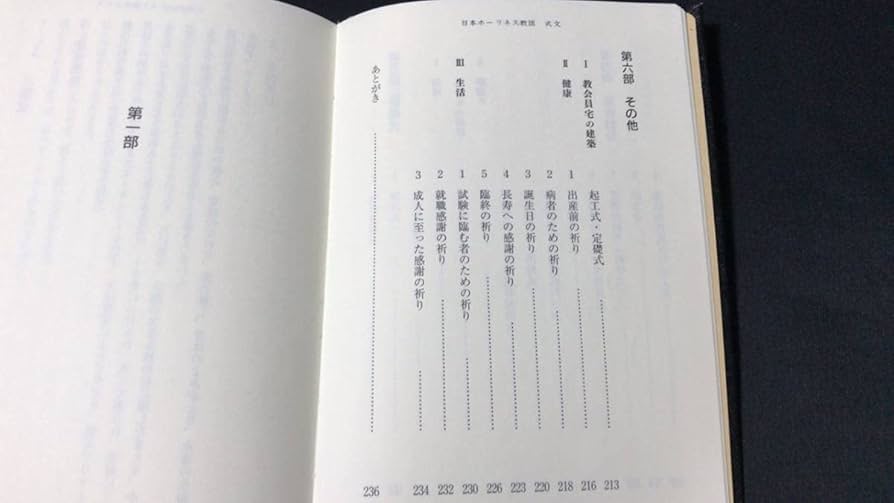 日本ホーリネス教団 式文
第六部 その他
Ⅰ 教会員宅の建築
起工式・定礎式 213
Ⅱ 健康
1 出産前の祈り 216
2 病者のための祈り 218
3 誕生日の祈り 220
4 長寿への感謝の祈り 223
5 臨終の祈り 226
Ⅲ 生活
1 試験に臨む者のための祈り 230
2 就職感謝の祈り 232
3 成人に至った感謝の祈り 234
あとがき 236
第一部